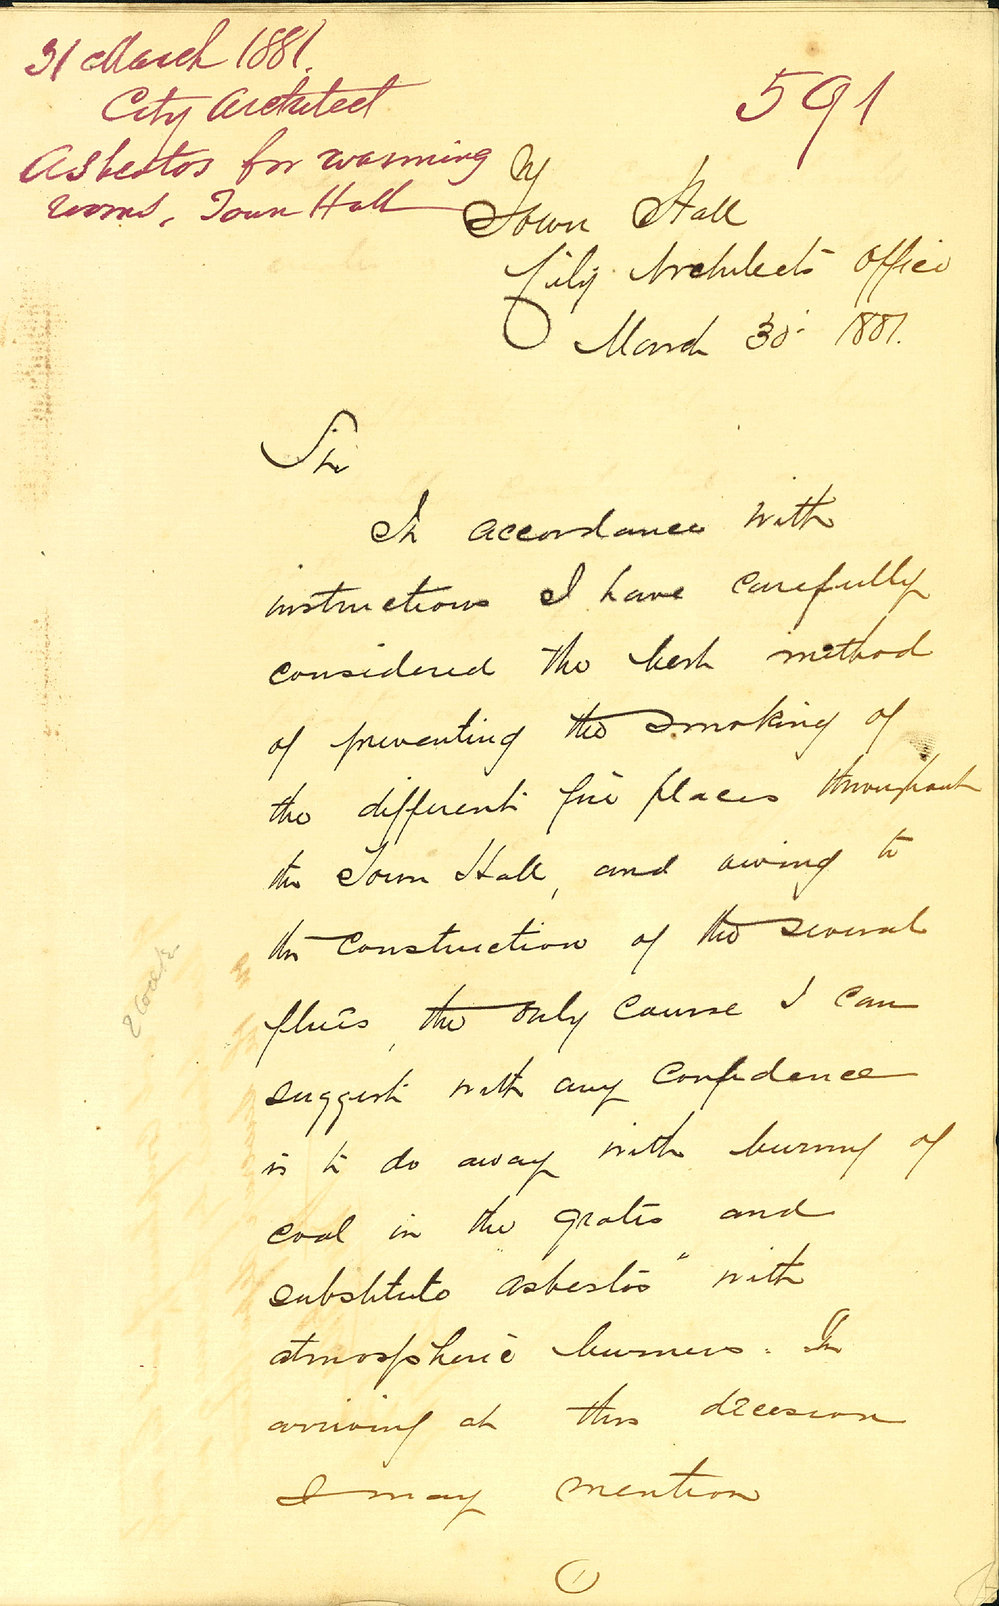 31 March 1881.
City Architect
Asbestos for warming
rooms, Town Hall
591
Town Hall
City Architects Office
March 30 1881.
Sir
In accordance with
instructions I have carefully
considered the best method
of preventing the smoking of
the different fire places throughout
the Town Hall, and owing to
the construction of the several
flues, the only course I can
suggest with any confidence
is to do away with burning of
coal in the grates and
substitute "asbestos" with
atmospheric burners. In
arriving at this decision
I may mention
1